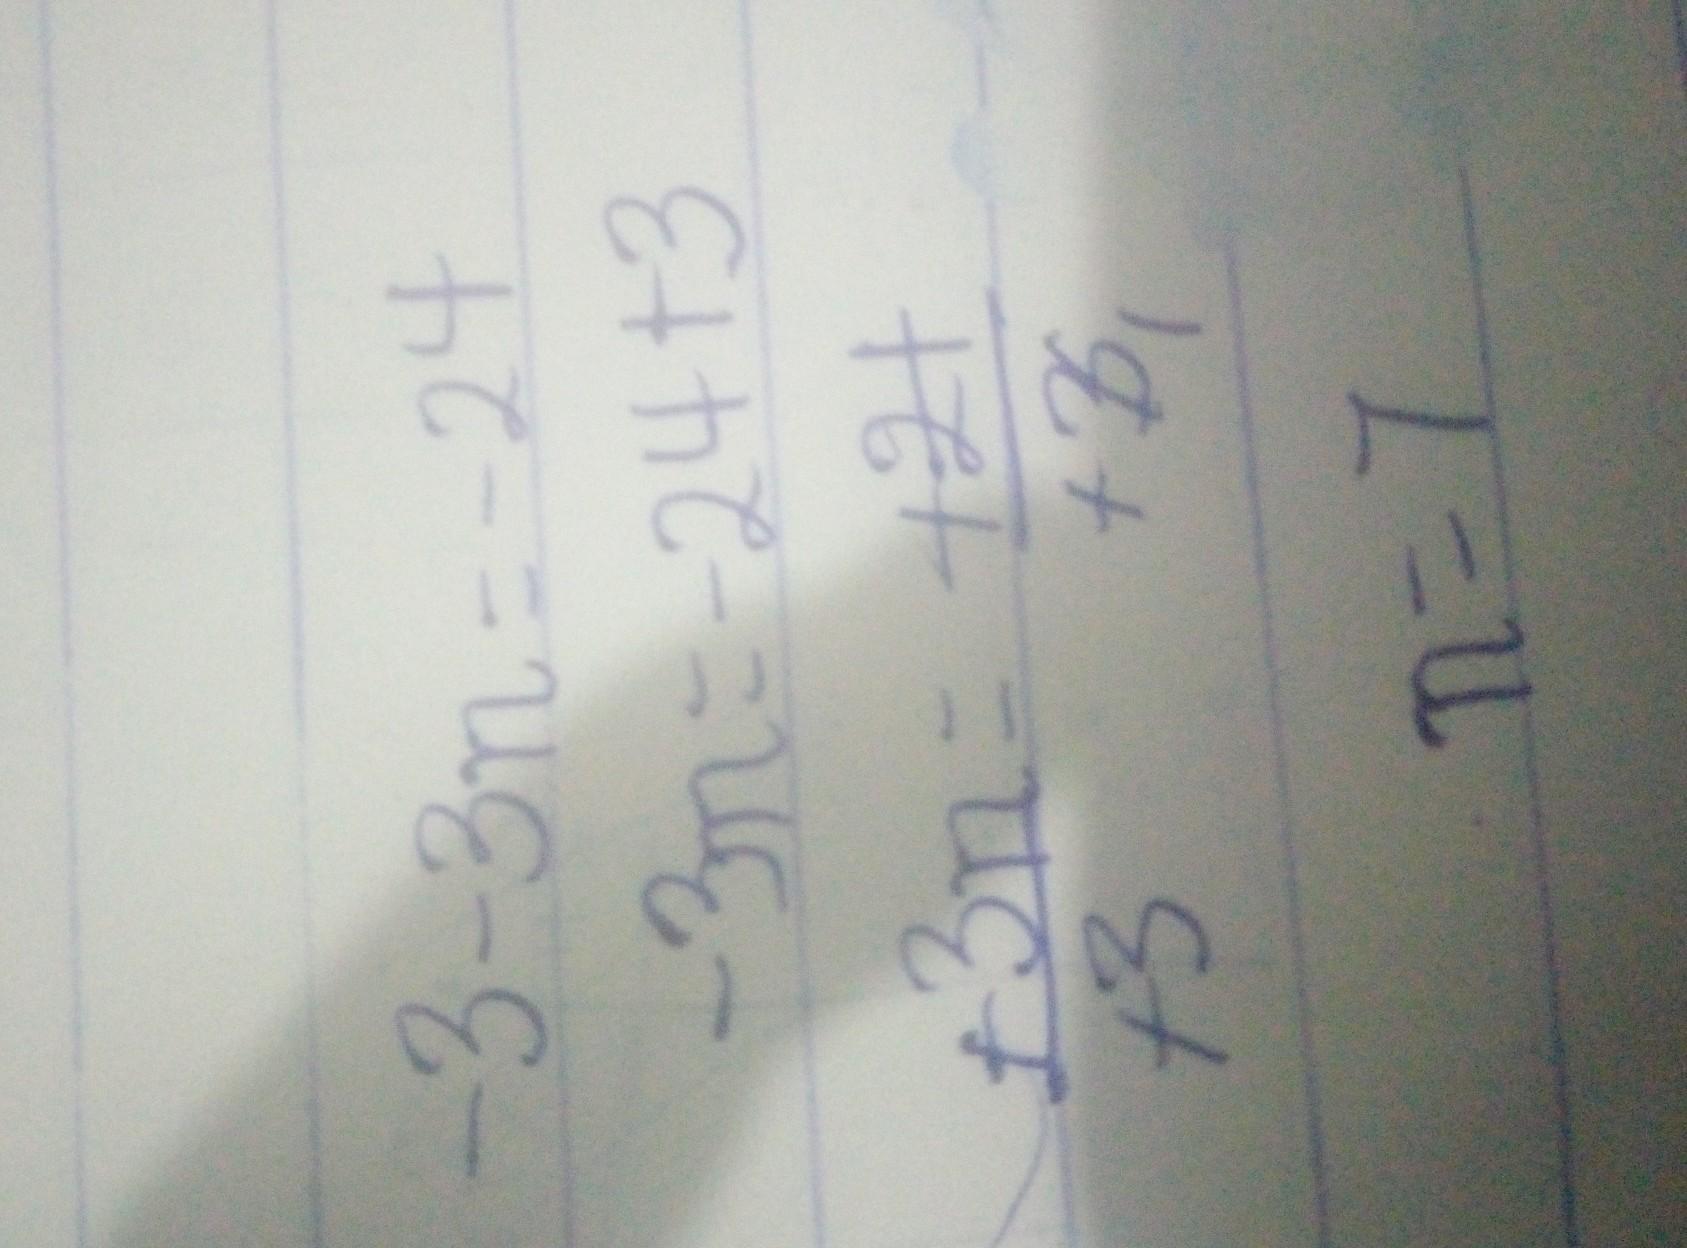 -3-3n=-24
-3n=-24+3
+3n = +21
+3 +3 1
n=7